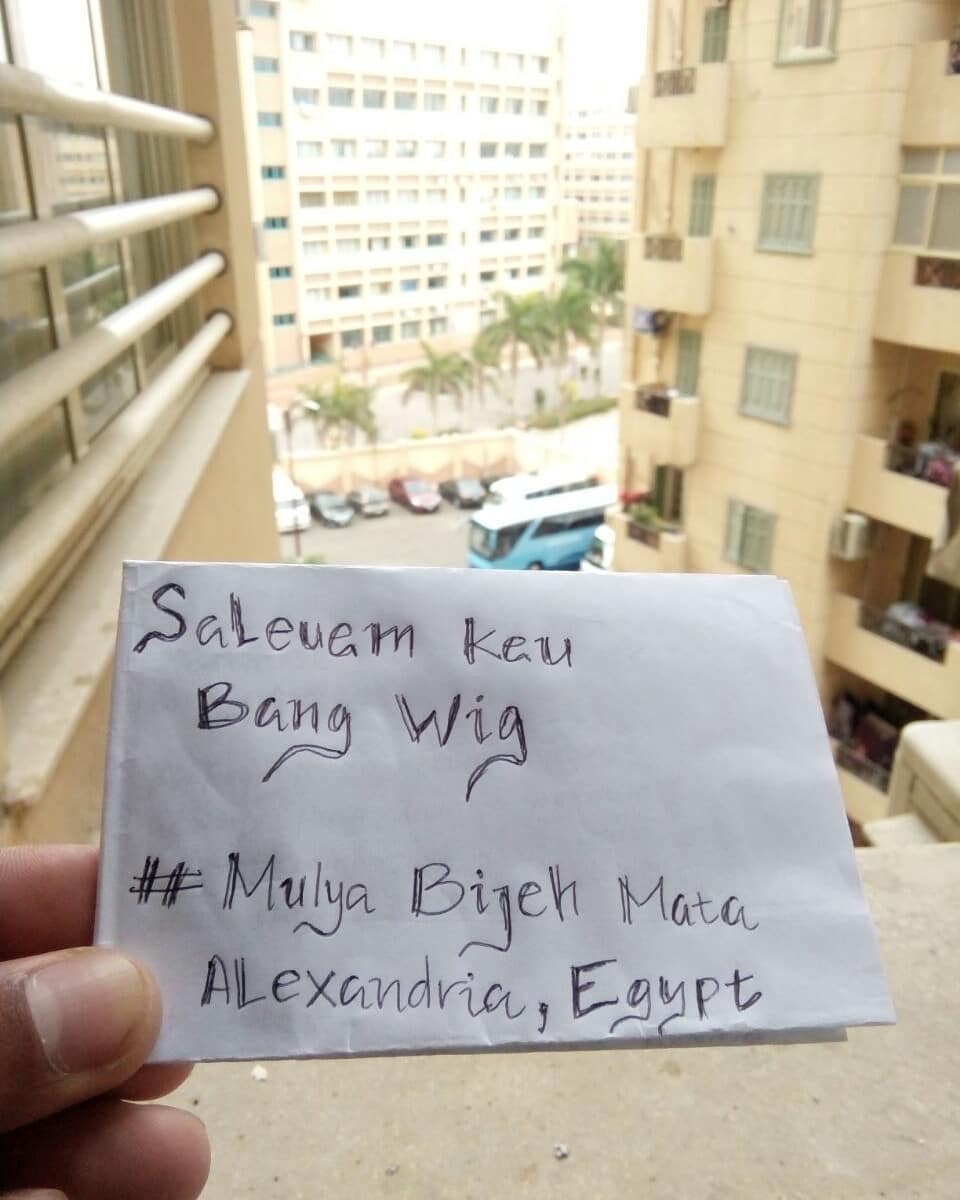 Saleuem keu
Bang Wig
# Mulya Bijeh Mata
Alexandria, Egypt